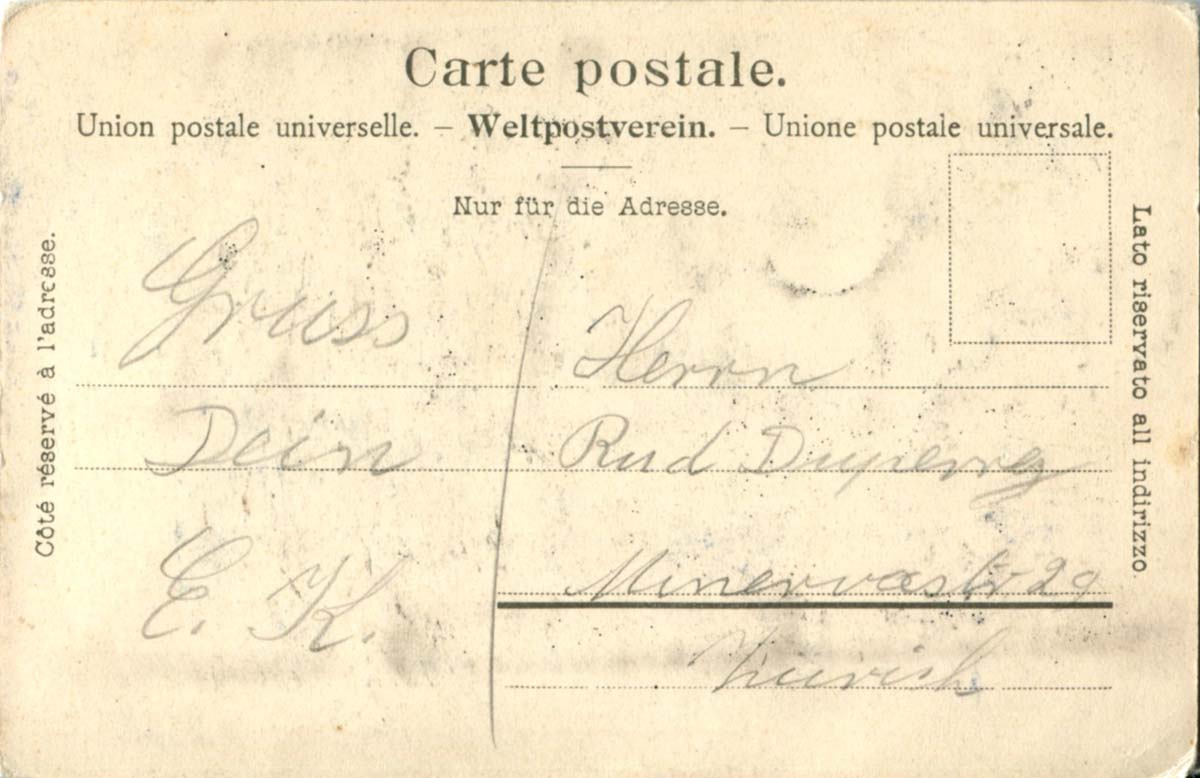 Carte postale.
Union postale universelle. – Weltpostverein. – Unione postale universale.
Nur für die Adresse.
Côté réservé à l'adresse.
Lato riservato all indirizzo.
Gruss
Dein
E. K.
Herrn
Rud Duperrey
Minervastr 29
Zürich